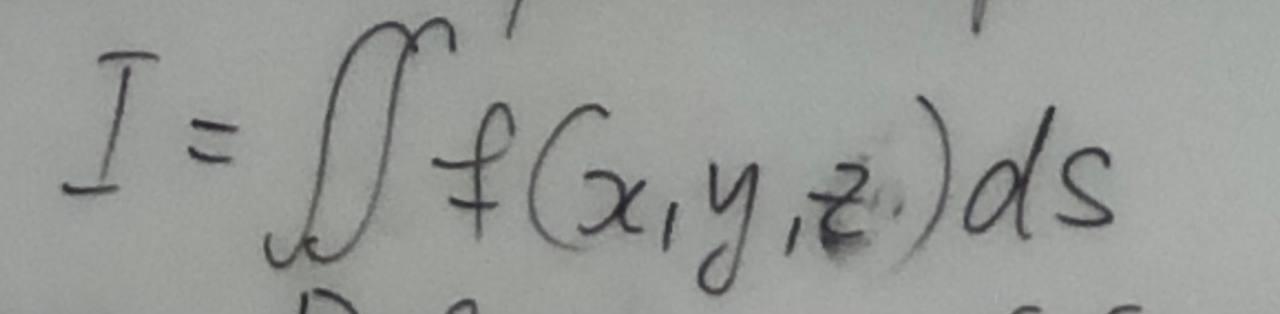 I = ∬ f(x,y,z)ds